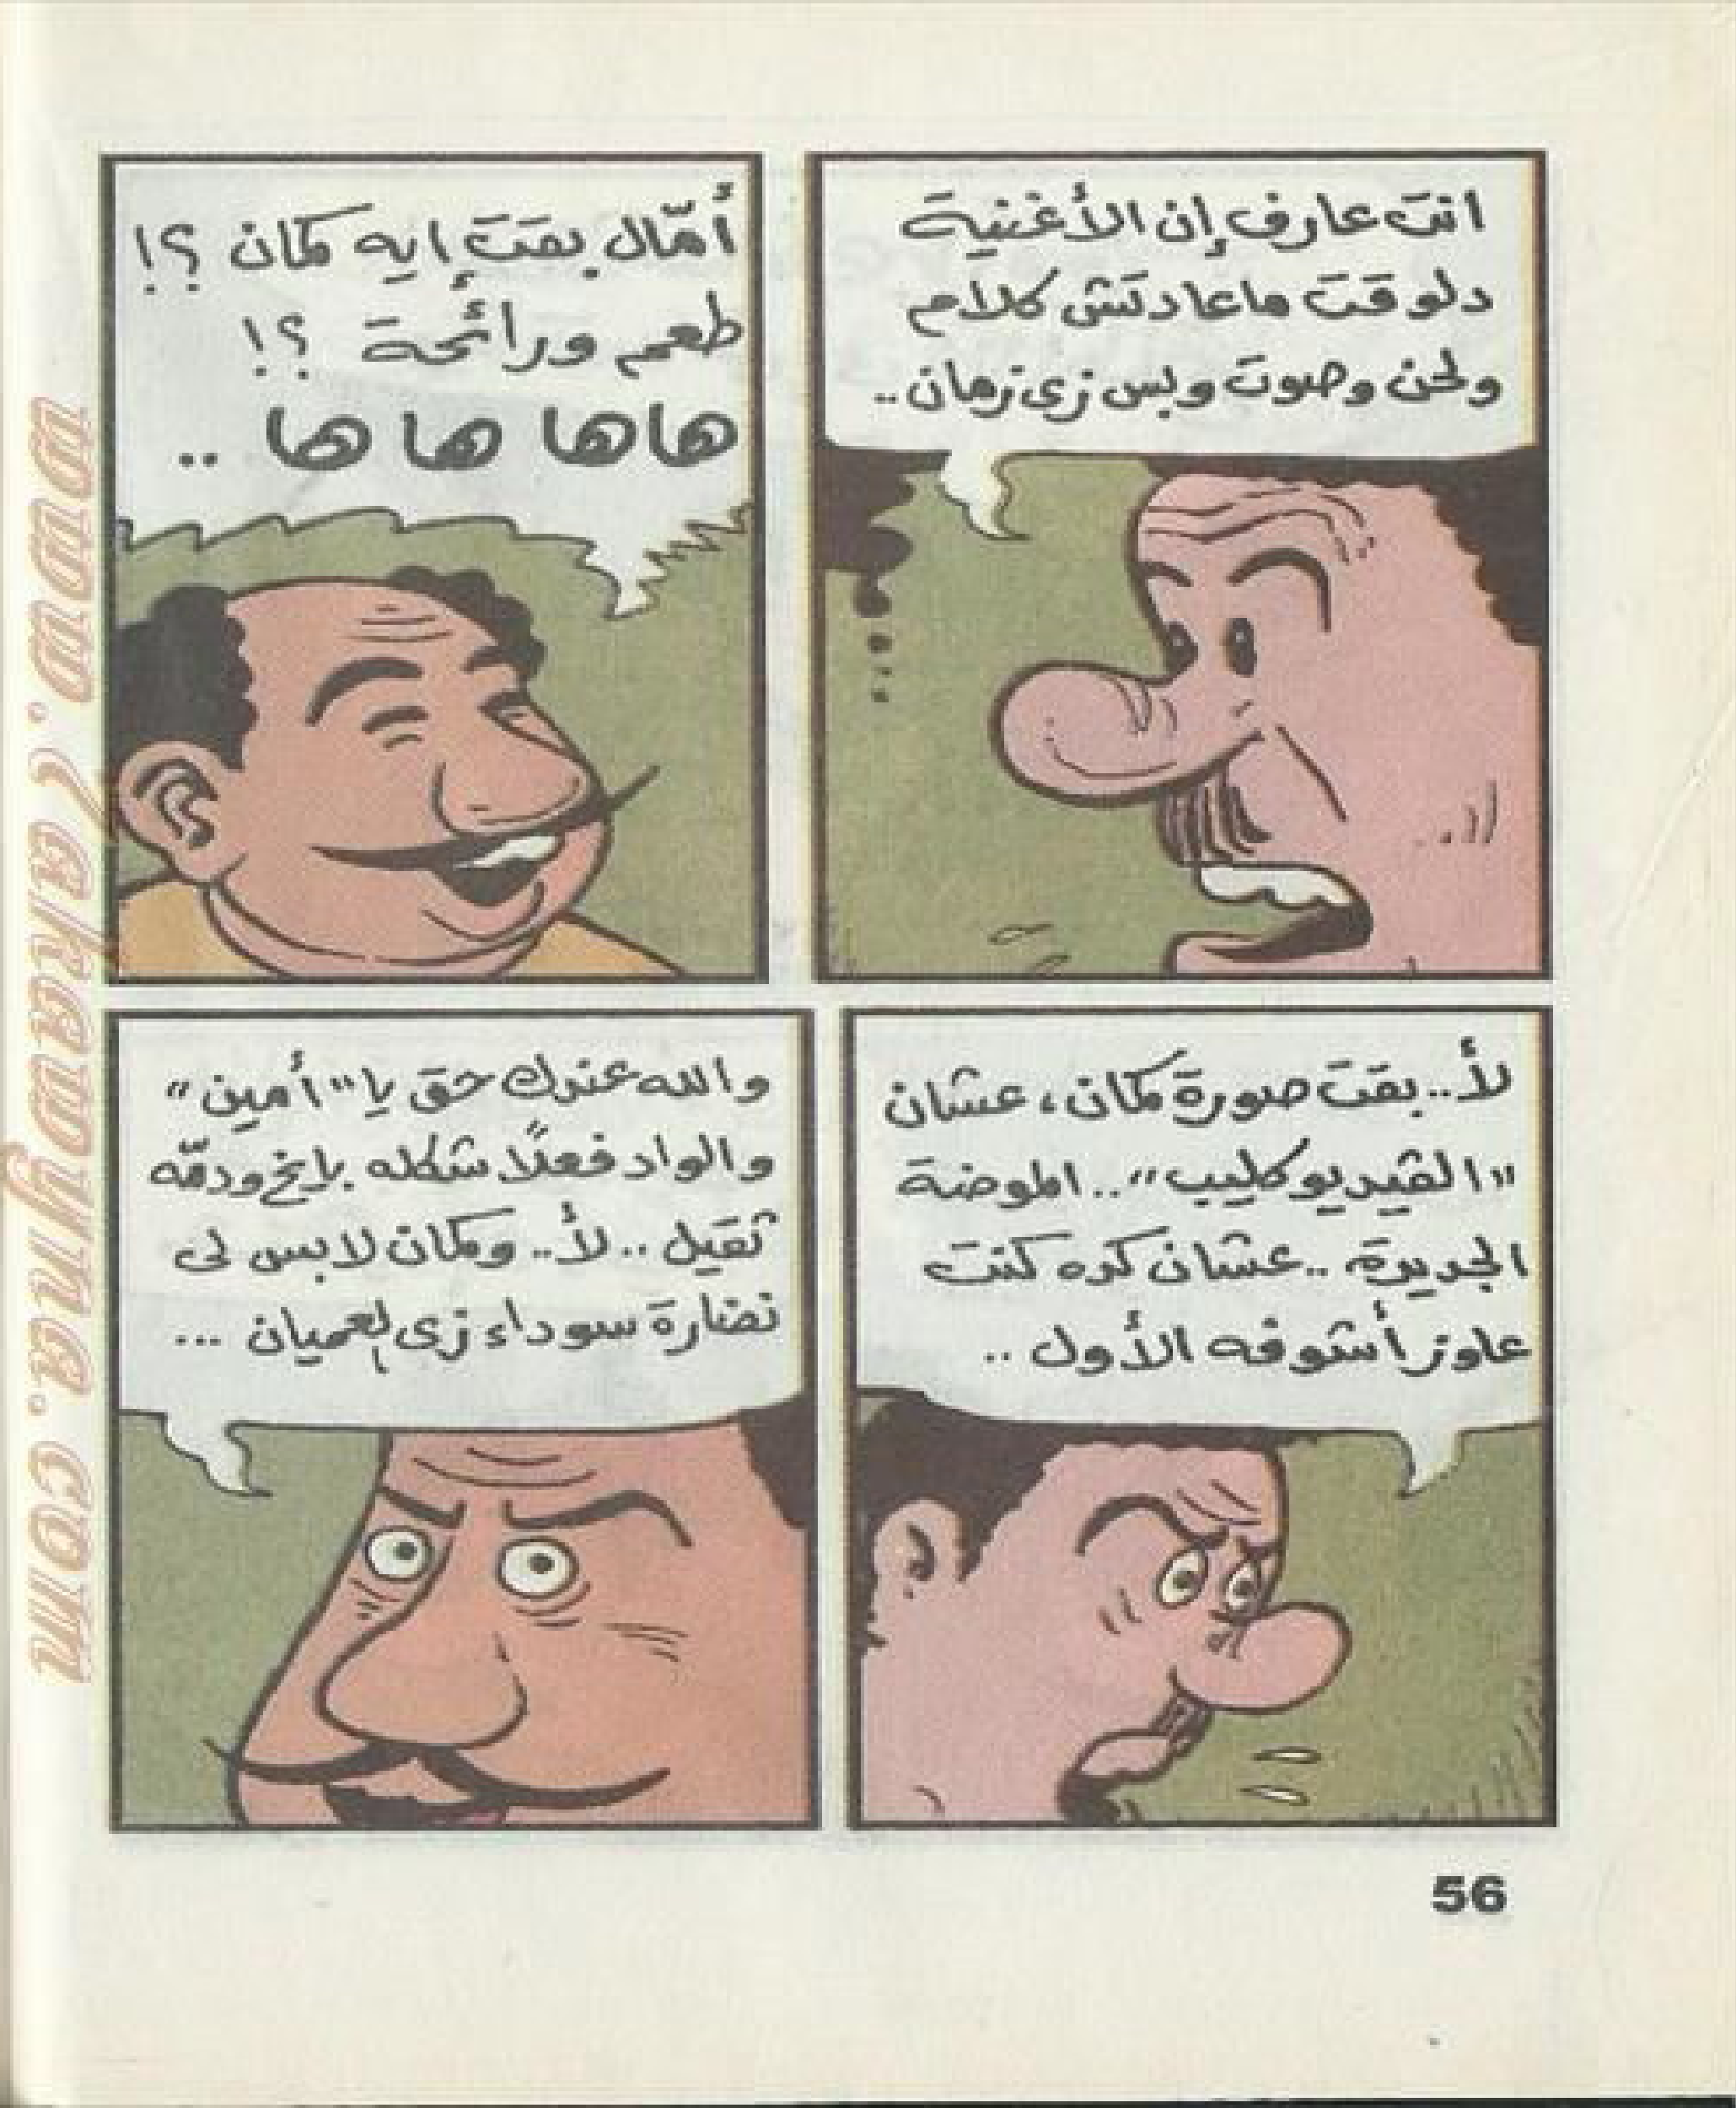 انت عارف إن الأغنية
دلوقت ماعادتش كلام
ولحن وصوت وبس زى زمان..
أمّال بقت إيه كمان ؟!
طعم ورائحة ؟!
هاها ها ها ..
لأ.. بقت صورة كمان، عشان
"الڤيديو كليب".. الموضة
الجديدة .. عشان كده كنت
عاوز أشوفه الأول ..
والله عندك حق يا "أمين"
والواد فعلاً شكله بايخ ودمّه
ثقيل .. لأ.. وكمان لابس لى
نضارة سوداء زى العميان ...
56
www.rakhawyna.com